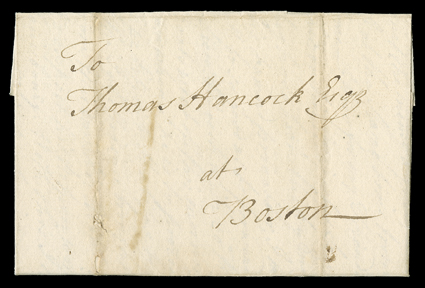 To
Thomas Hancock Esqr
at
Boston